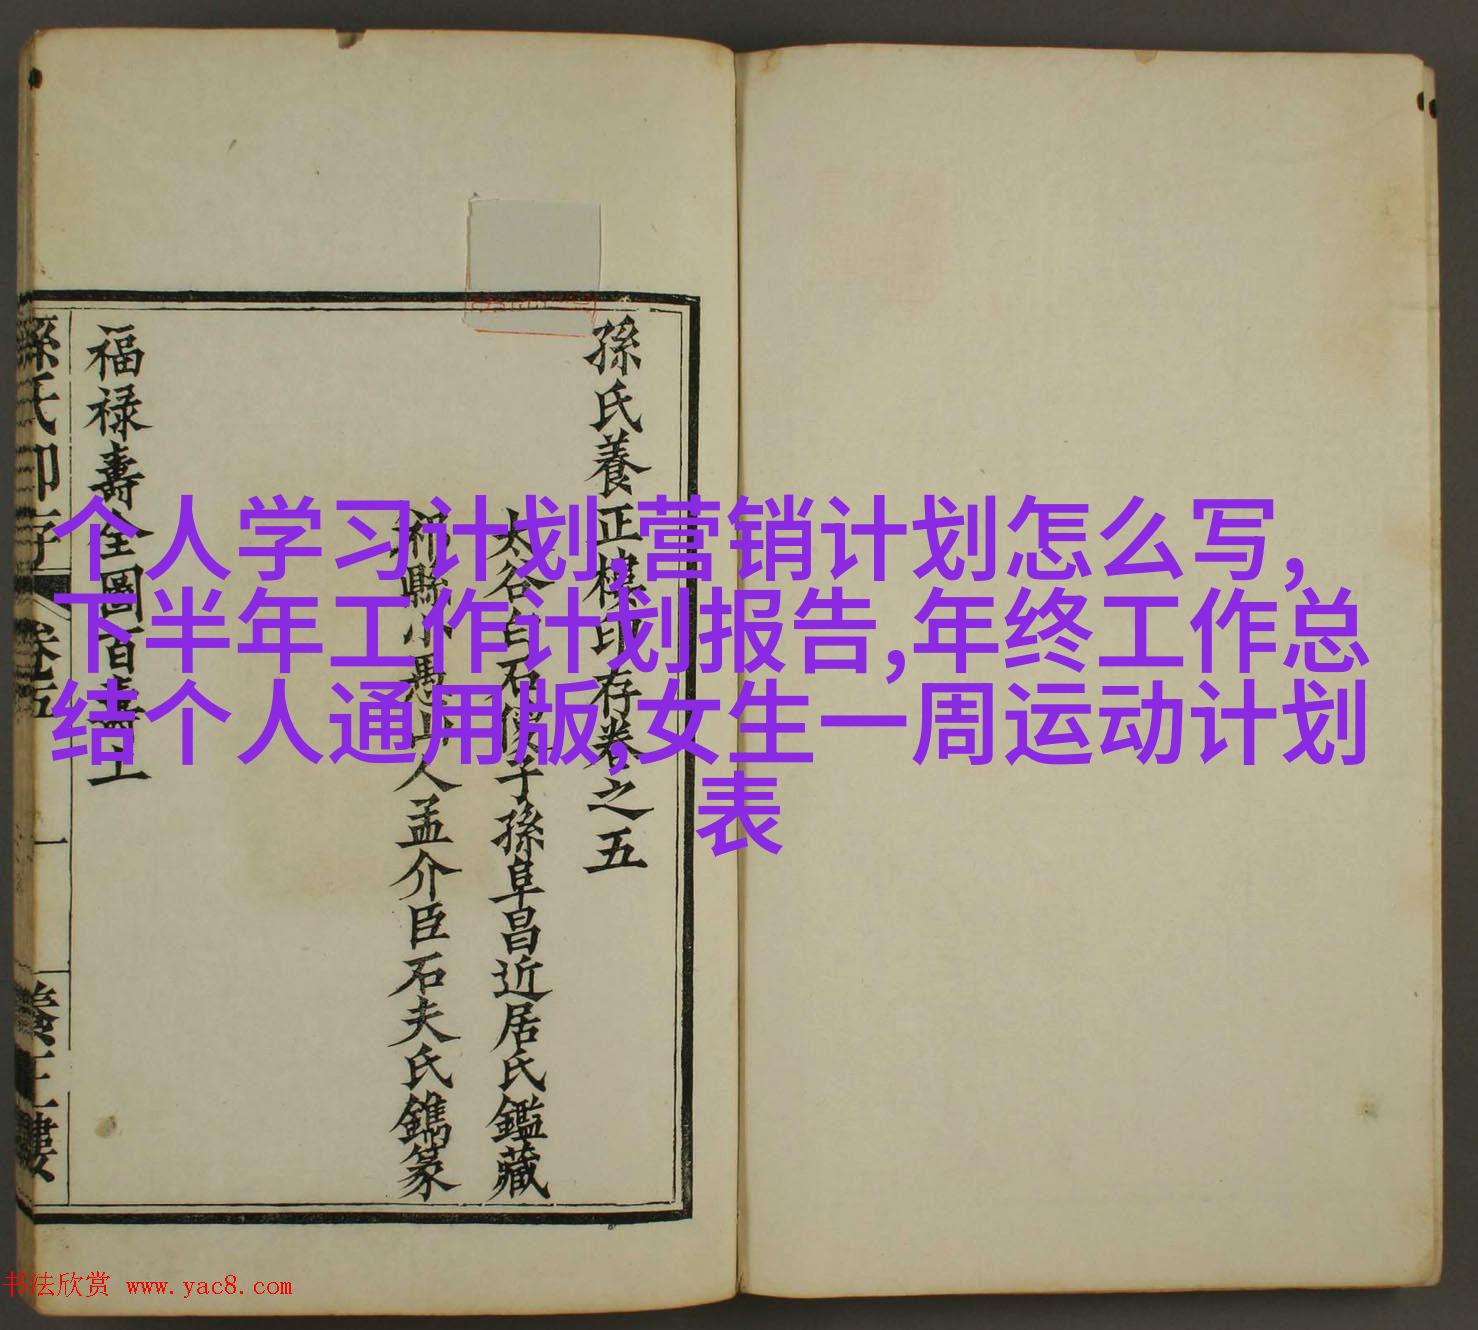 个人学习计划,营销计划怎么写,
下半年工作计划报告,年终工作总
结个人通用版,女生一周运动计划
表
孫氏養正樓印存卷之五
太谷白石子孫阜昌近居氏鑑藏
祁縣小愚山人孟介臣石夫氏鐫篆
福禄壽全圖百壽上
孫氏印存 卷五 一 養正樓
书法欣赏 www.yac8.com